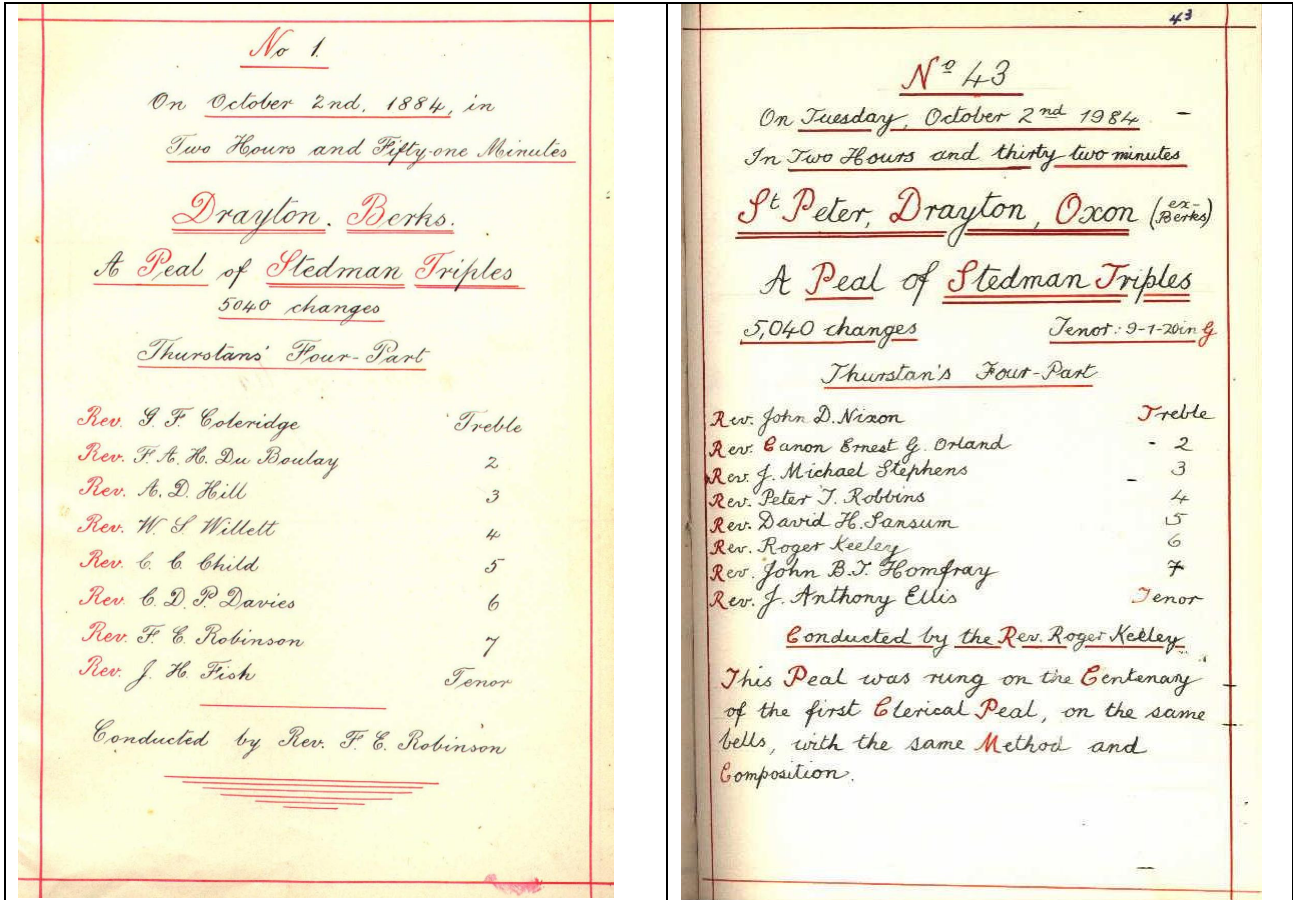 No 1.
On October 2nd, 1884, in
Two Hours and Fifty-one Minutes
Drayton. Berks.
A Peal of Stedman Triples
5040 changes
Thurstans' Four-Part
Rev. G. F. Coleridge Treble
Rev. F. A. H. Du Boulay 2
Rev. A. D. Hill 3
Rev. W. S. Willett 4
Rev. C. C. Child 5
Rev. C. D. P. Davies 6
Rev. F. E. Robinson 7
Rev. J. H. Fish Tenor
Conducted by Rev. F. E. Robinson
43
No 43
On Tuesday, October 2nd 1984.
In Two Hours and thirty two minutes
St. Peter, Drayton, Oxon (ex-Berks)
A Peal of Stedman Triples
5,040 changes Tenor: 9-1-20 in G
Thurstan's Four-Part
Rev. John D. Nixon Treble
Rev. Canon Ernest G. Orland 2
Rev. J. Michael Stephens 3
Rev. Peter T. Robbins 4
Rev. David H. Sansum 5
Rev. Roger Keeley 6
Rev. John B. T. Homfray 7
Rev. J. Anthony Ellis Tenor
Conducted by the Rev. Roger Keeley
This Peal was rung on the Centenary
of the first Clerical Peal, on the same
bells, with the same Method and
Composition.